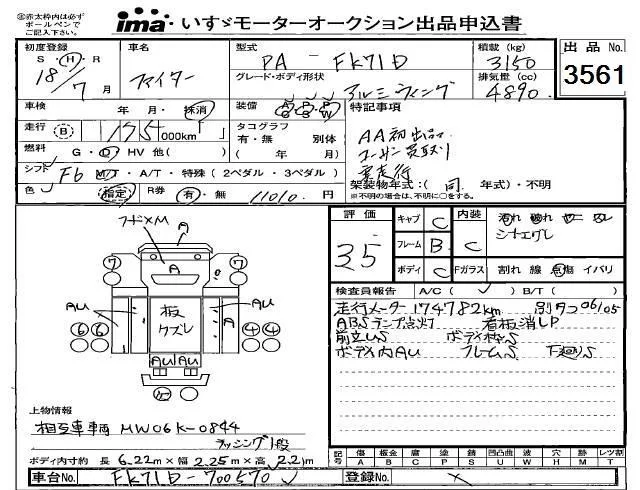 ※赤太枠内は必ず
ボールペンで
ご記入下さい。
ima いすゞモーターオークション出品申込書
初度登録
S・H・R
18/7月
車名
ファイター
型式
PA-FK71D
積載 (kg)
3150
出品No.
3561
グレード・ボディ形状
アルミウィング
排気量 (cc)
4890
車検
年 月・抹消
装備
A/C P/S P/W
特記事項
AA初出品
ユーザー買取り
実走行
走行
175,000km
タコグラフ
有・無 別体
( 年 月)
燃料
G・D・HV 他( )
シフト
F6 M/T・A/T・特殊(2ペダル・3ペダル)
架装物年式:( 同 年式)・不明
※不明の場合は、不明に○をする。
色
指定
R券
有・無 11010 円
フードXM
A
A
7
7
AU
板
クズレ
AU
A
6 6
4 4
AU AU
評価
3.5
キャブ C
フレーム B
ボディ C
内装 C
汚れ 破れ
シートエグレ
Fガラス
割れ 線 点傷 イバリ
検査員報告
A/C( ✓ ) B/T( )
走行メーター174782km 別タコ06/05
ABSランプ点灯 看板消しP
前立US ボデ枠S
ボデ内AU フレームS 下廻りS
上物情報
相互車輌 MW06K-0844
ラッシング1段
ボディ内寸約 長 6.22m×幅 2.25m×高 2.2m
記号
傷 板金 腐 塗 錆 凹凸曲 波 穴 無 レツ割
A B C P S U W H M T
車台No.
FK71D-700570
登録No.